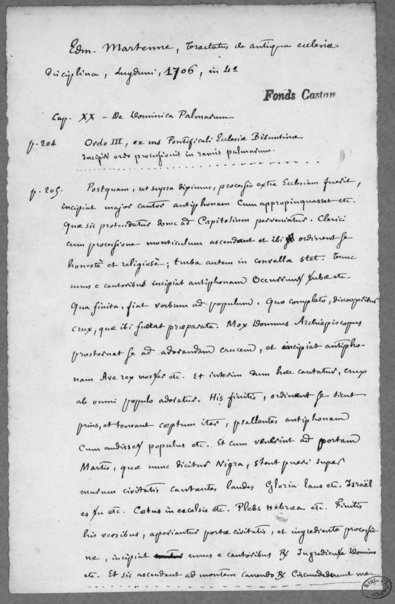 Edm. Martenne, Tractatus de antiqua ecclesiæ
disciplina, Lugduni, 1706, in 4º
Fonds Castan
Cap. XX – De Dominica Palmarum
p. 204 Ordo III, ex ms Pontificali Ecclesiæ Bisuntinæ
Incipit ordo processionis in ramis palmarum.
p. 205. Postquam, ut supra diximus, processio extra Ecclesiam fuerit,
incipiat major cantor antiphonam Cum appropinquasset etc.
Quæ sic protendatur donec ad Capitolium perveniatur. Clerici
cum processione monticulum ascendant et ibi ordinent se
honestè et religiosè; turba autem in convalle stet. Tunc
unus e cantoribus incipiat antiphonam Occurrunt turbæ etc.
Qua finita, fiat verbum ad populum. Quo completo, discooperitur
crux, quæ ibi fuerat præparata. Mox Domnus Archiepiscopus
prosternat se ad adorandam crucem, et incipiat antipho-
nam Ave rex noster etc. Et interim dum hæc cantatur, crux
ab omni populo adoratur. His finitis, ordinent se sicut
prius, et teneant cœptum iter, psallentes antiphonam
Cum audisset populus etc. Et cum venerint ad portam
Martis, quæ nunc dicitur Nigra, stent pueri super
murum civitatis cantantes laudes Gloria laus etc. Israël
es tu etc. Cœtus in excelsis etc. Plebs Hebræa etc. Finitis
his versibus, aperiantur portæ civitatis, et ingrediente processio-
ne, incipiat unus e cantoribus ℟ Ingrediente Domino
etc. Et sic ascendant ad montem canendo ℟ Circumdederunt me